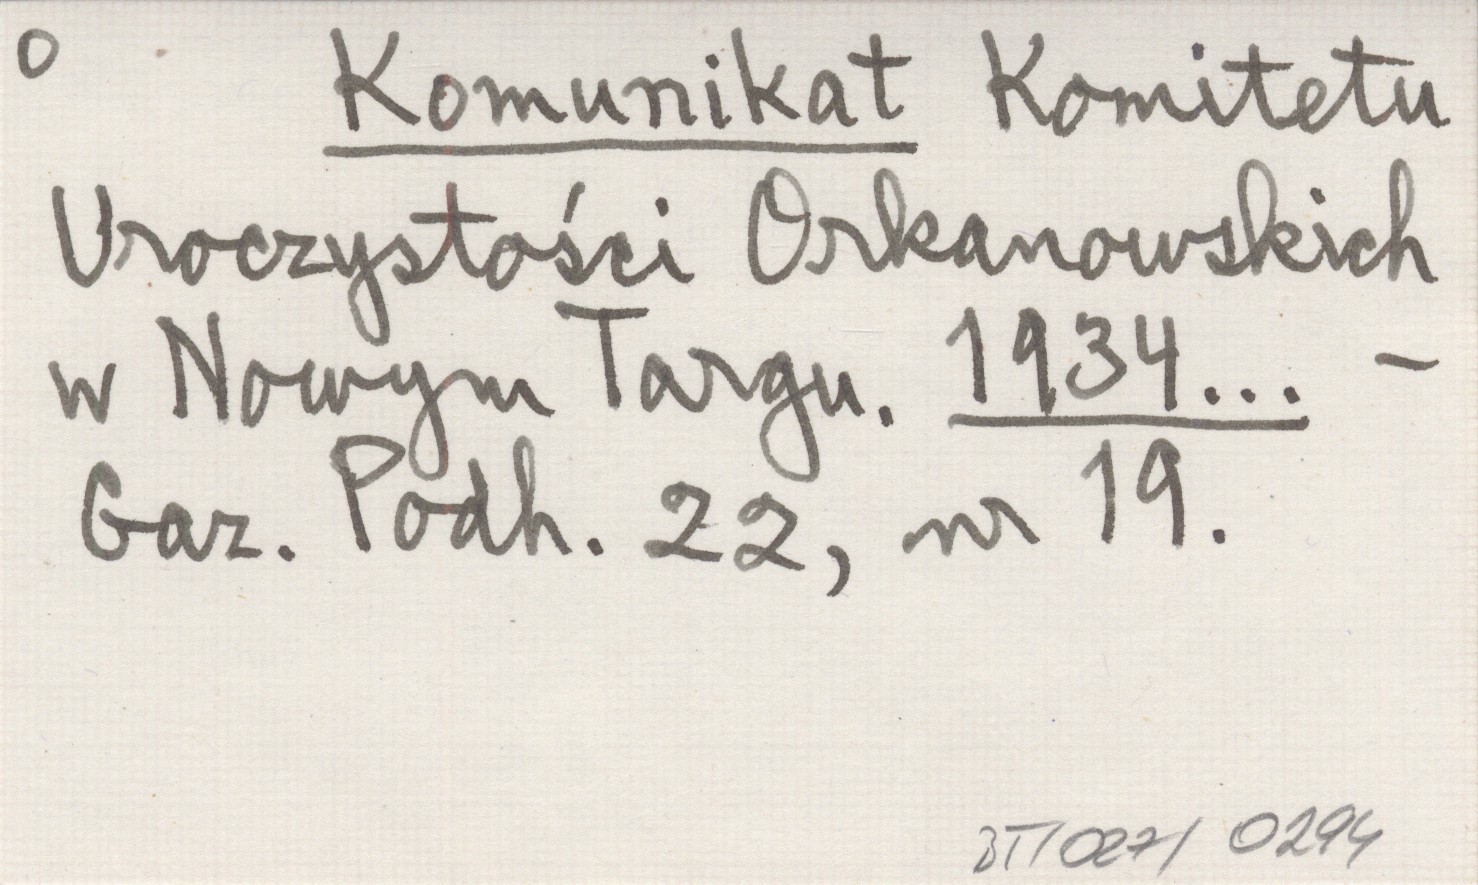 O Komunikat Komitetu
Uroczystości Orkanowskich
w Nowym Targu. 1934... –
Gaz. Podh. 22, nr 19.
BTT/027/ 0294